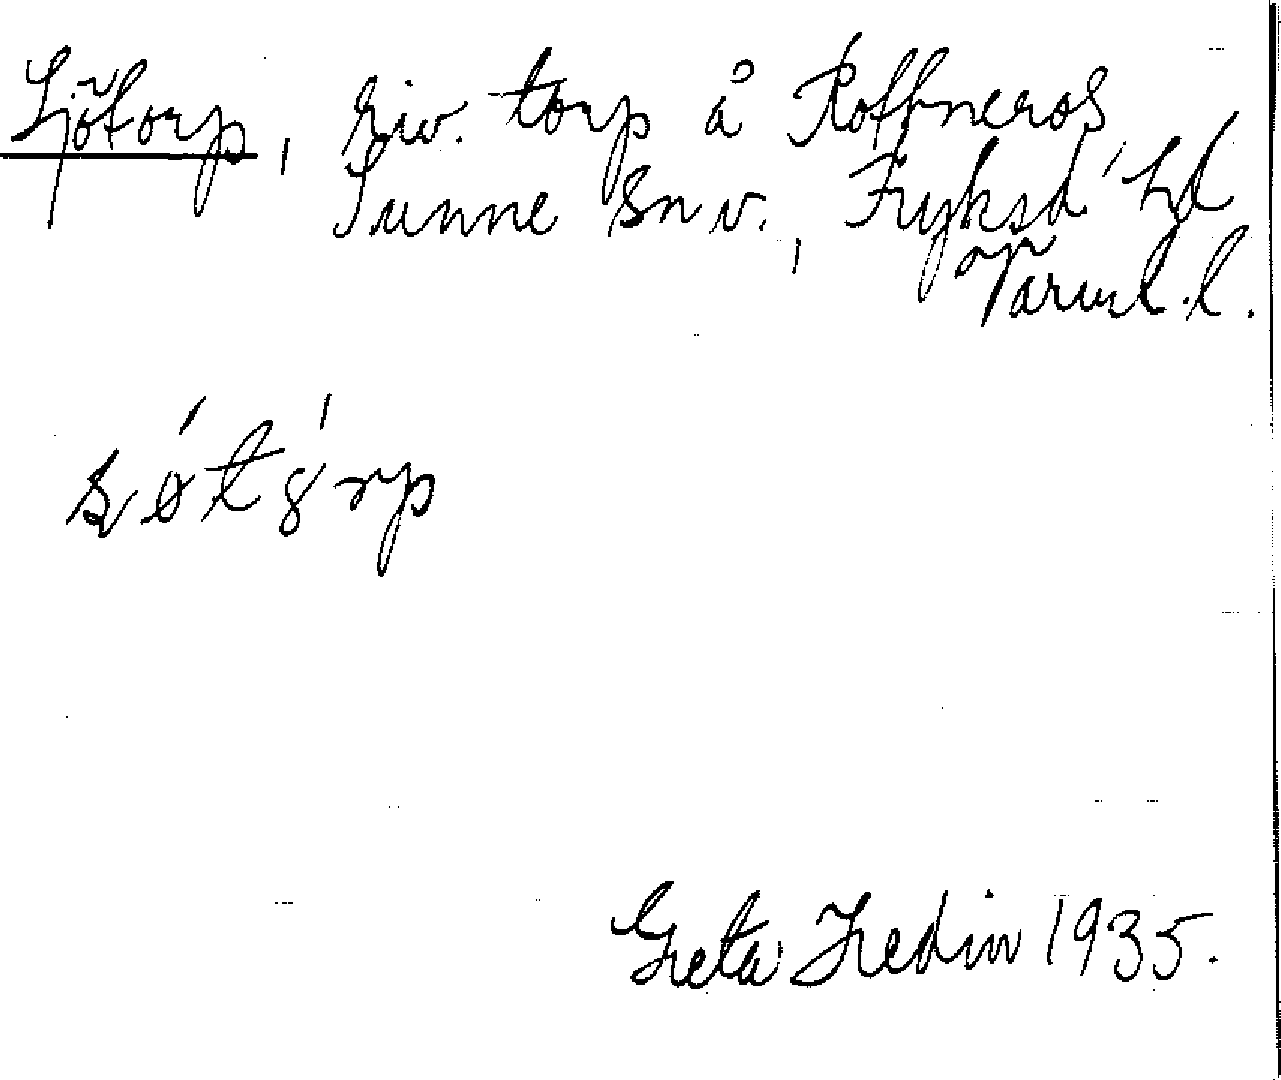 Sjötorp, riv. torp å Rottneros,
Sunne sn v., Fryksd. hd,
Värml. l.
Greta Hedin 1935.